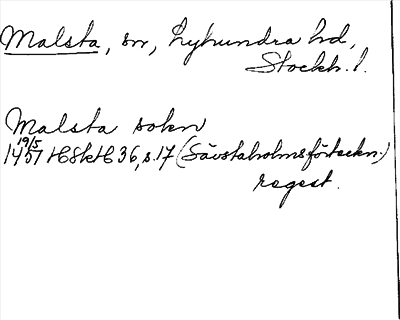 Malsta, sn, Lyhundra hd,
Stockh. l.
Malsta sokn
19/5
1457 HSkH 36, s. 17 (Sävstaholmsförteckn.)
regest.